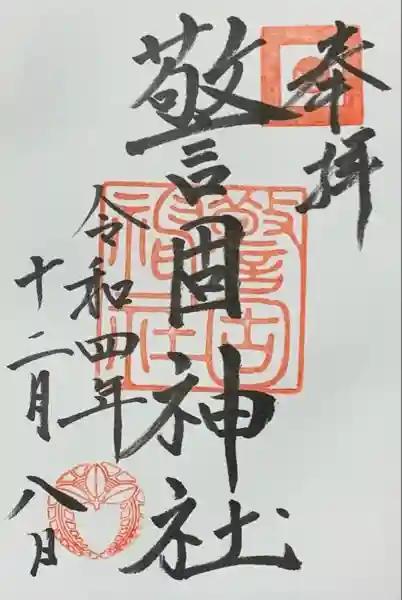 奉拝
警固神社
令和四年
十二月八日
警固神社